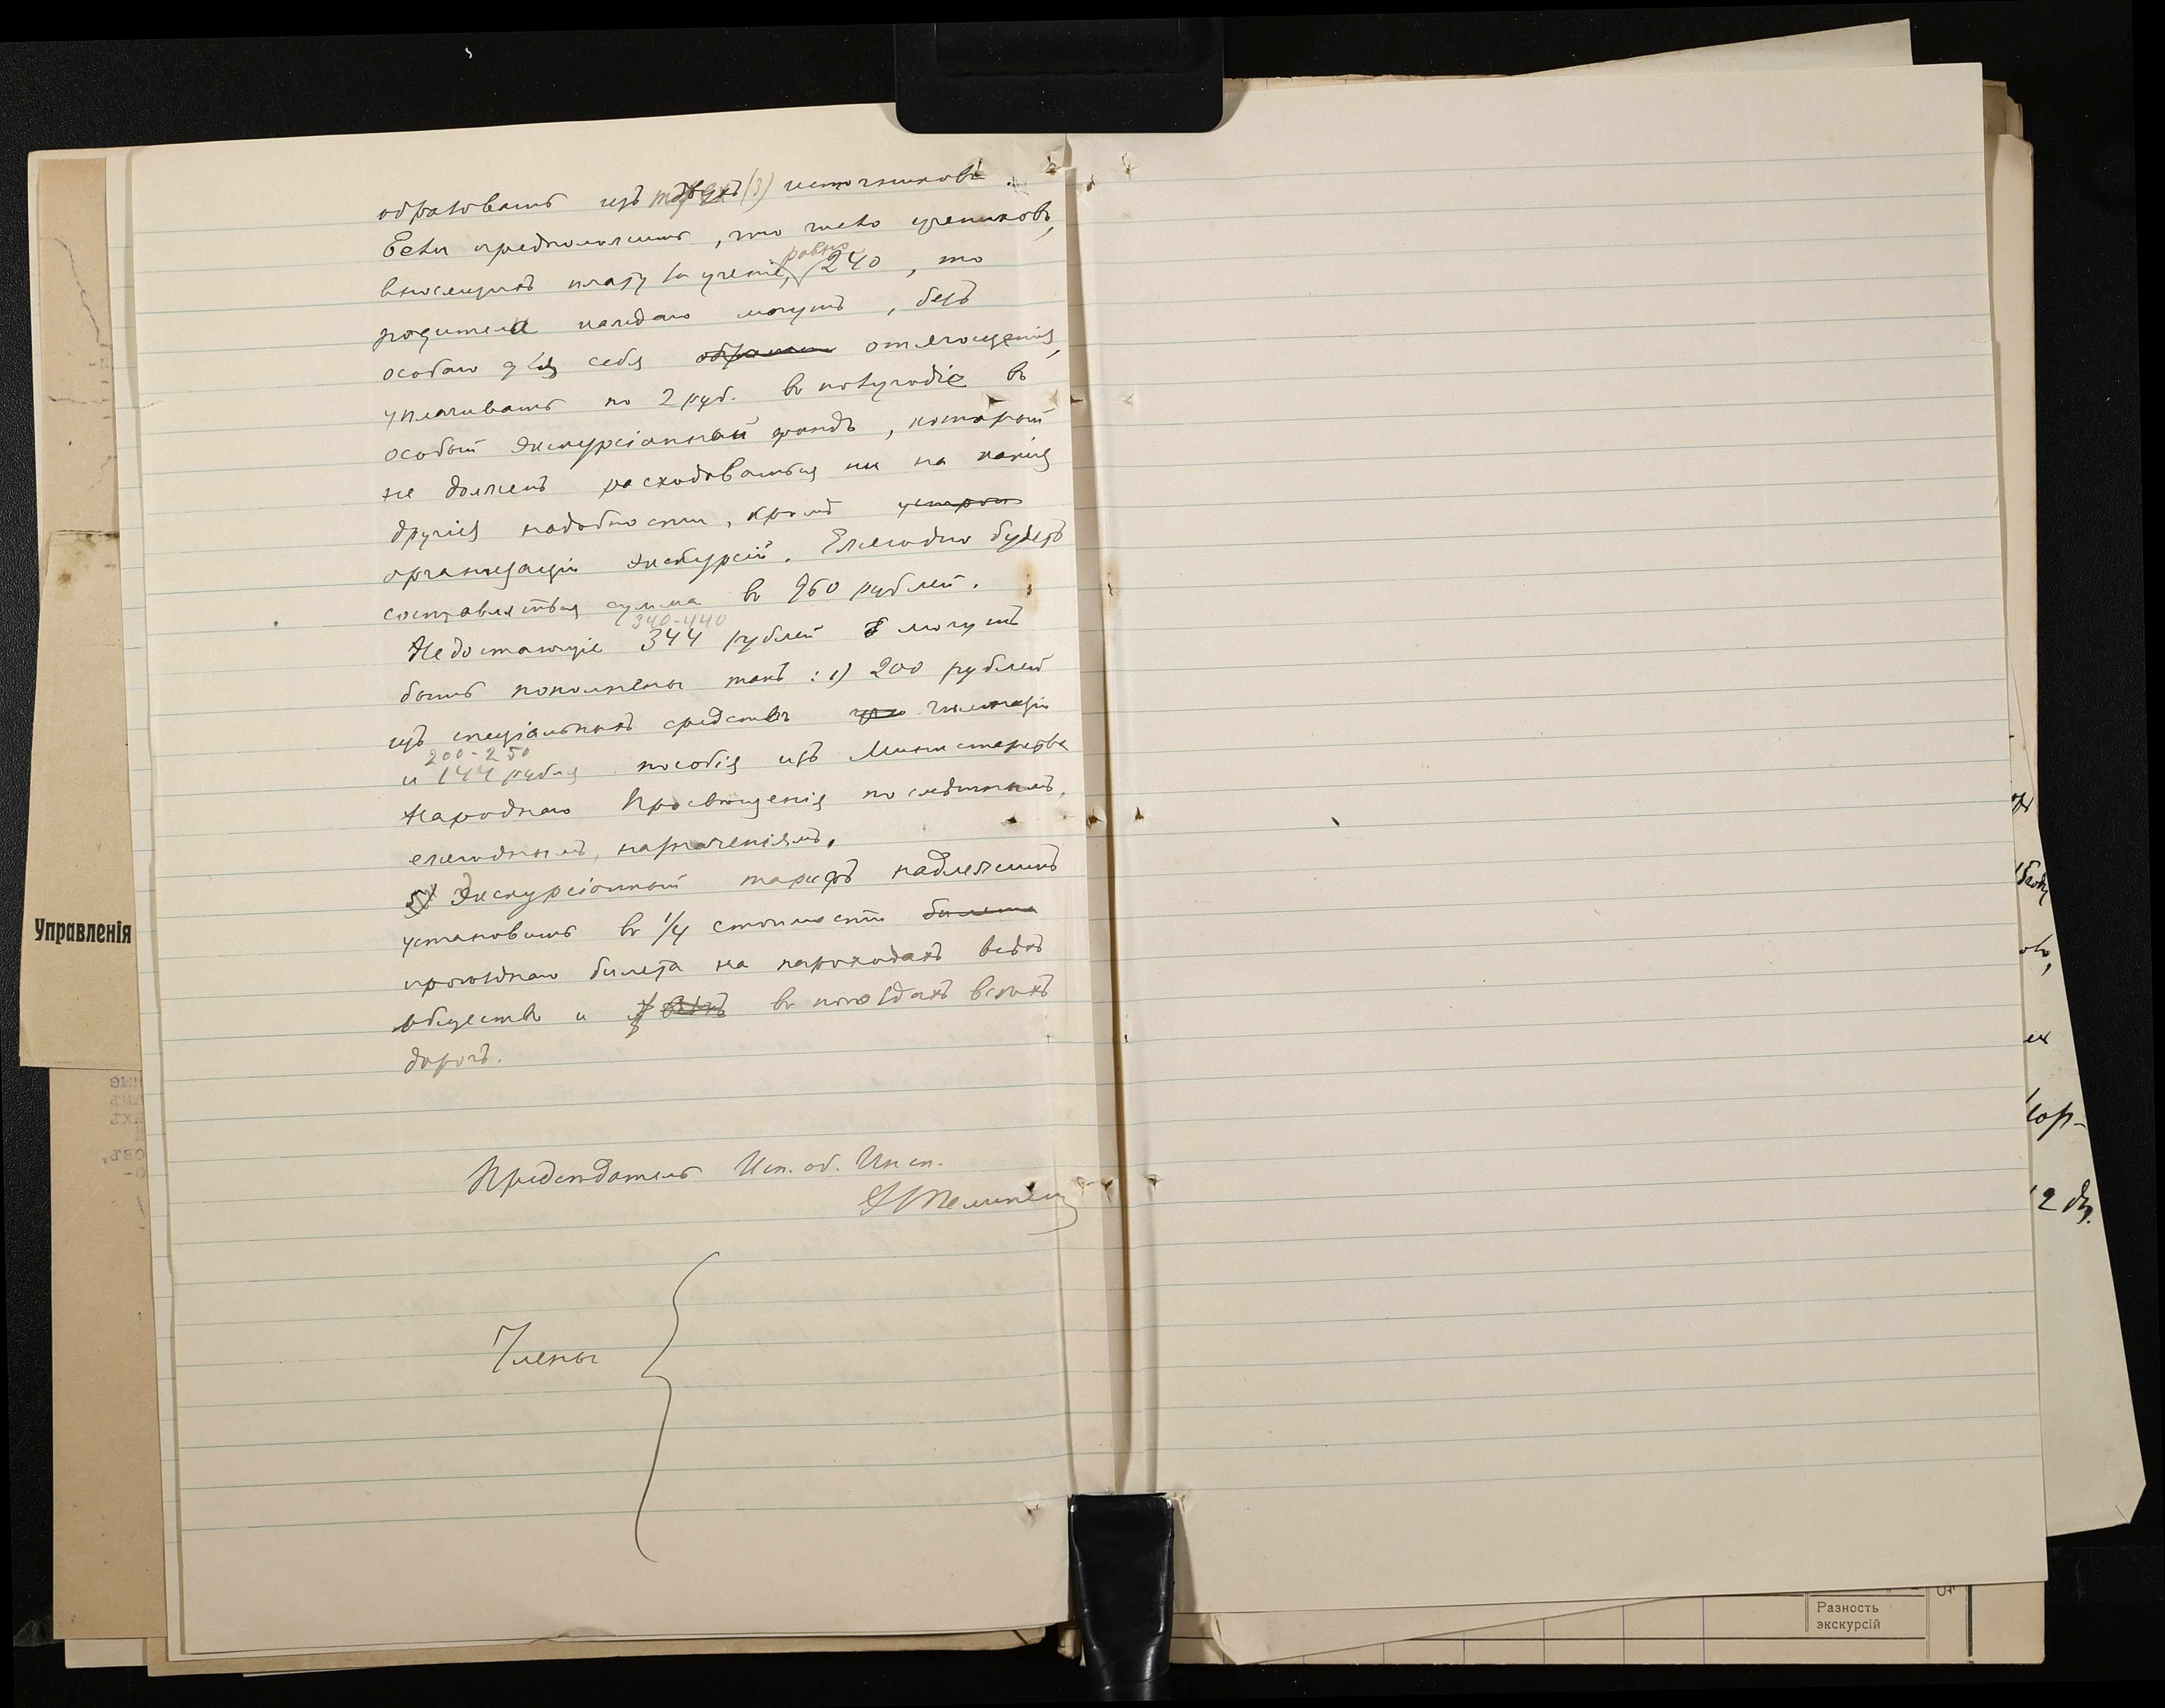 образовать изъ трехъ (3) источниковъ.
Если предположить, что число учениковъ,
вносящихъ плату за ученіе, равно 240, то
родители каждаго могутъ, безъ
особаго для себя отягощенія,
уплачивать по 2 руб. въ полугодіе въ
особый экскурсіонный фондъ, который
не долженъ расходоваться ни на какія
другія надобности, кромѣ устрой
организаціи экскурсій. Ежегодно будетъ
составляться сумма въ 960 рублей.
340-440
Недостающіе 344 рублей могутъ
быть пополнены такъ: 1) 200 рублей
изъ спеціальныхъ средствъ гимназіи
200-250
и 144 рубля пособія изъ Министерства
Народнаго Просвѣщенія по смѣтнымъ,
ежегоднымъ, назначеніямъ.
5) Экскурсіонный тарифъ надлежитъ
установить въ 1/4 стоимости билета
проѣзднаго билета на пароходахъ всѣхъ
обществъ и въ поѣздахъ всѣхъ
дорогъ.
Предсѣдатель Исп. об. Инсп.
Члены
Управленія
Разность
экскурсій